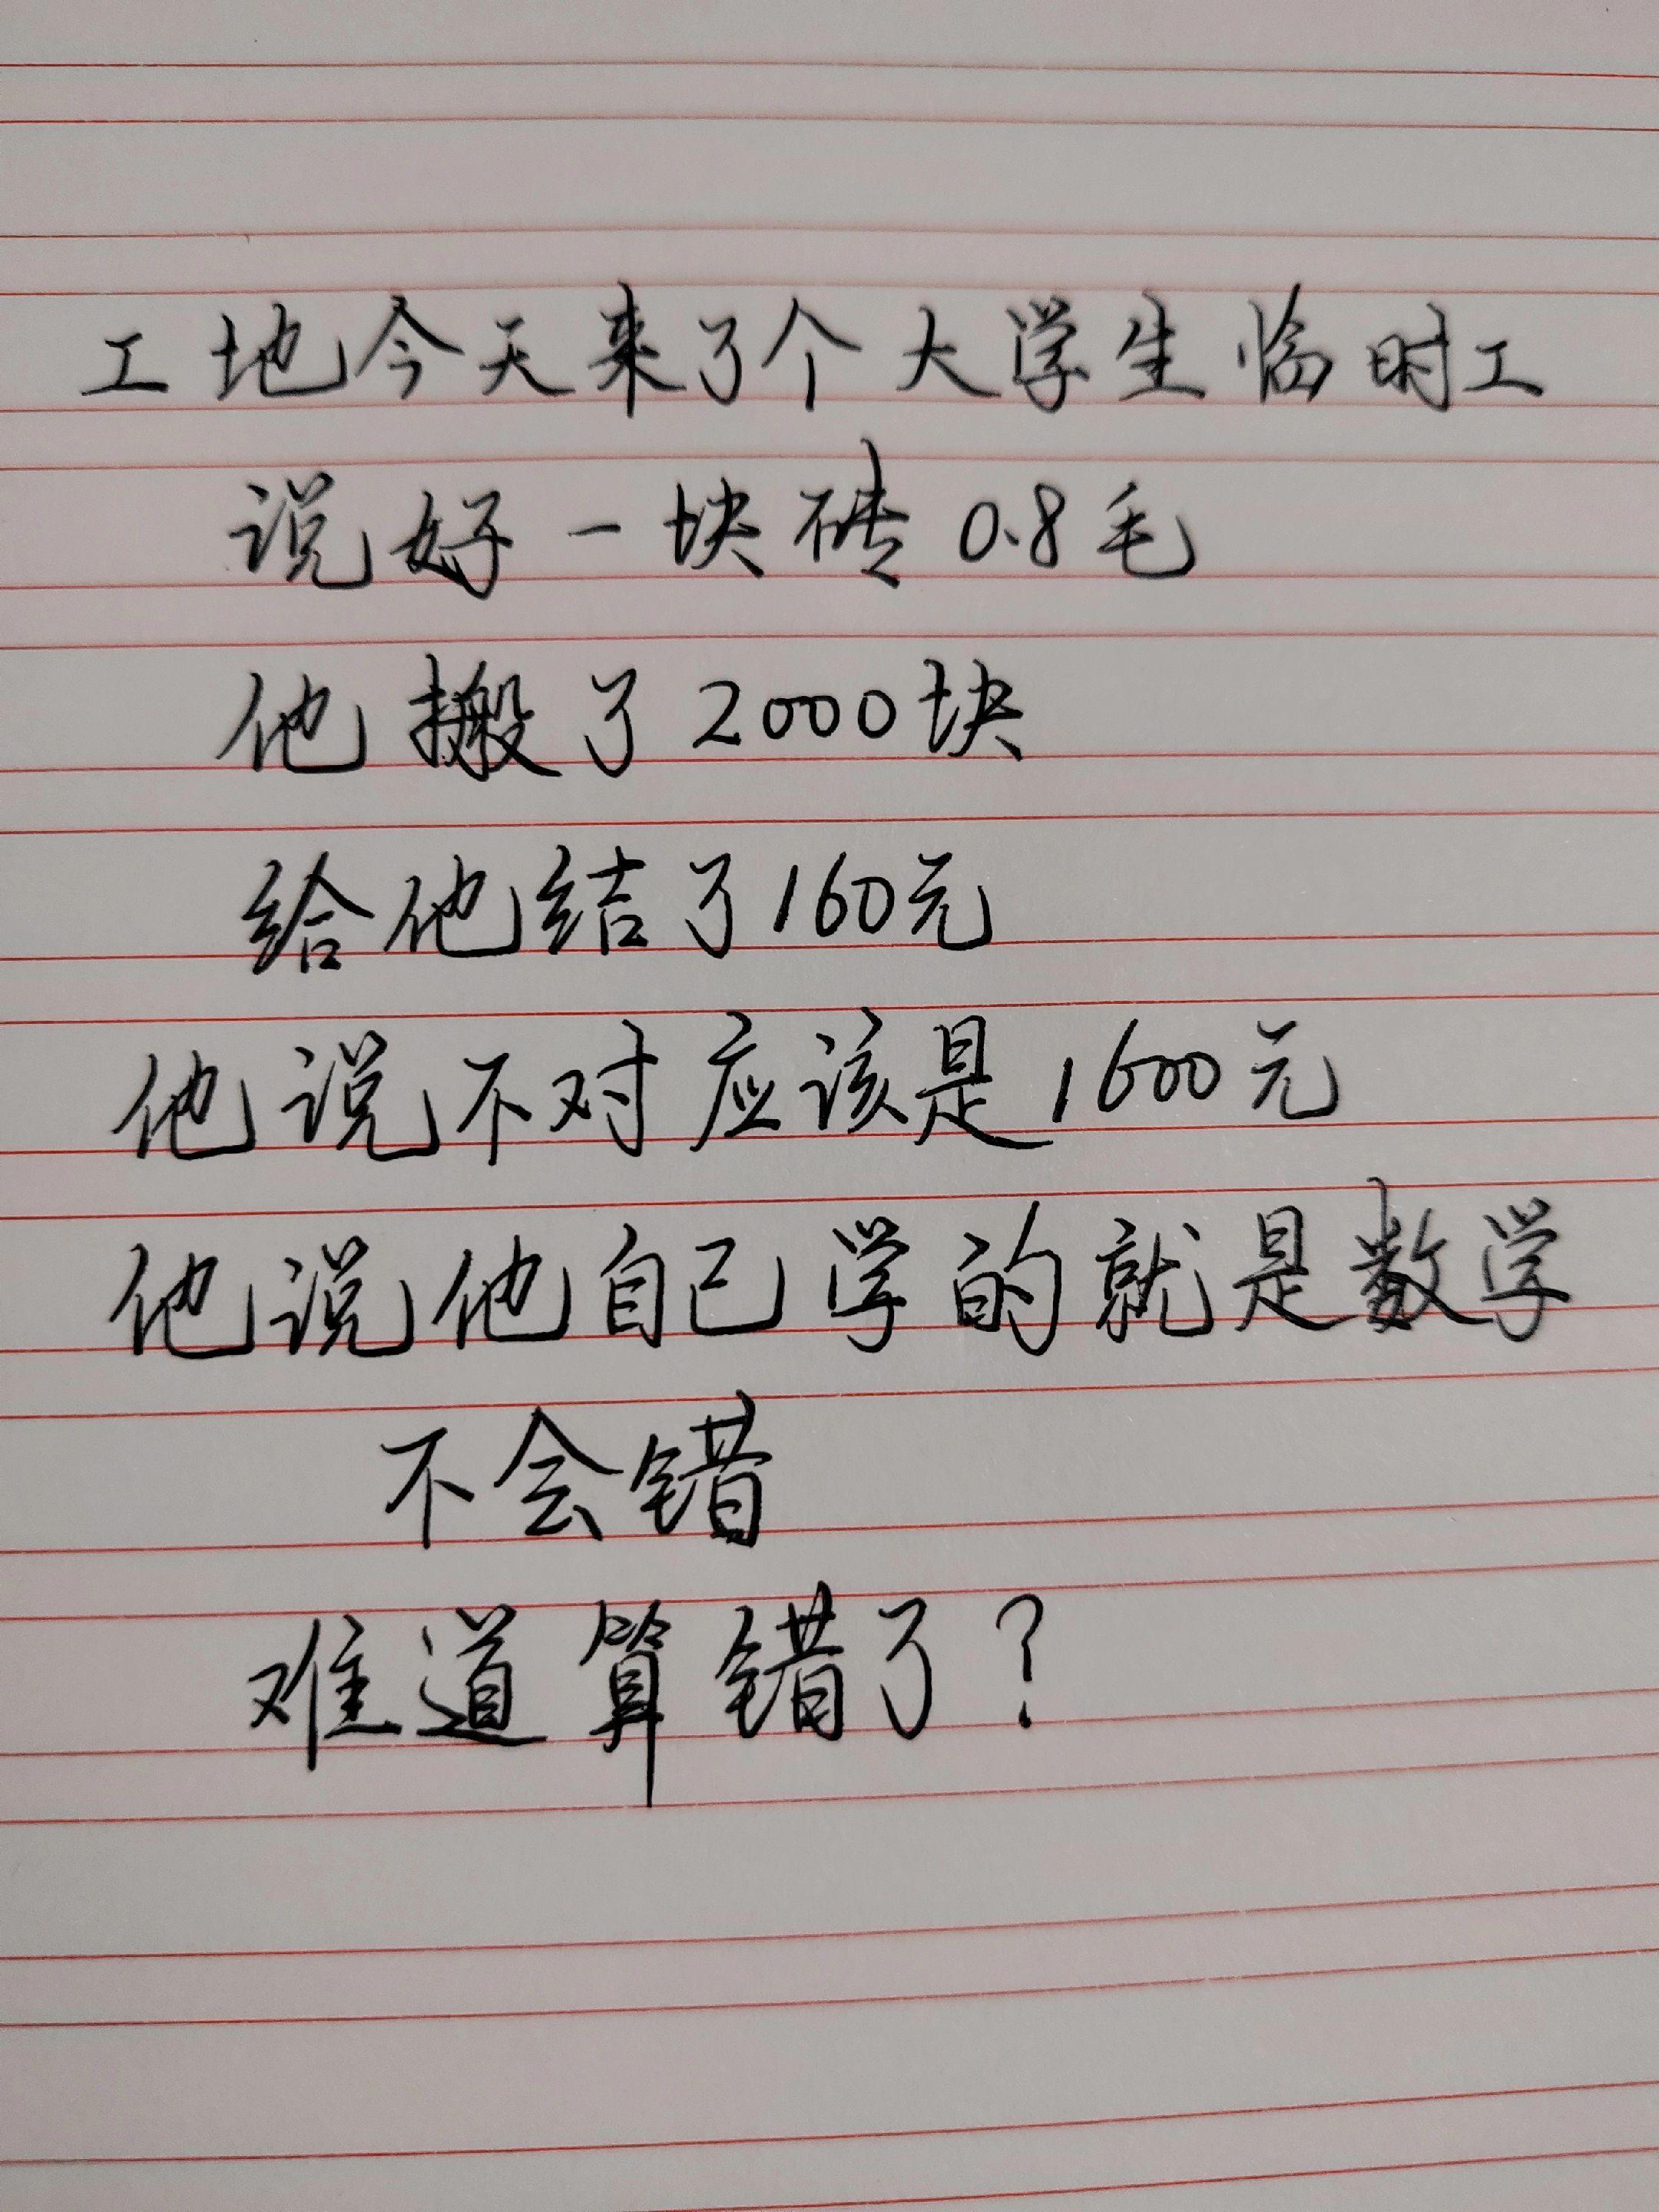 工地今天来了个大学生临时工
说好一块砖0.8毛
他搬了2000块
给他结了160元
他说不对应该是1600元
他说他自己学的就是数学
不会错
难道算错了?